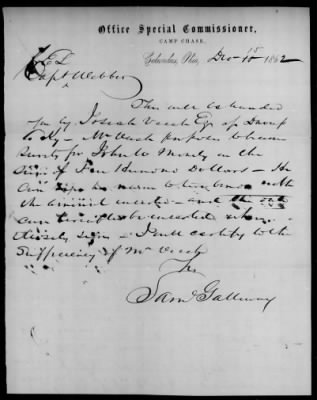 Office Special Commissioner,
CAMP CHASE,
Columbus, Ohio, Dec 15 1862
Capt Webber
This will be handed
you by Joseph Veach Esq of
Ky - Mr Veach proposes to become
surety for John W Monty in the
sum of Hundred Dollars - He
can sign his name to bond with
the amount inserted - and the
can be inserted when
sign - I will certify to the
sufficiency of Mr Veach
Saml Galloway